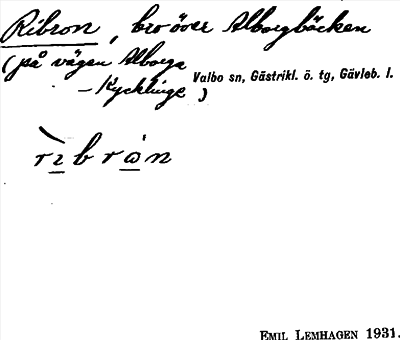 Ribron, bro över Alborgbäcken
(på vägen Alborga
– Kycklinge)
Valbo sn, Gästrikl. ö. tg, Gävleb. l.
rìbrón
EMIL LEMHAGEN 1931.